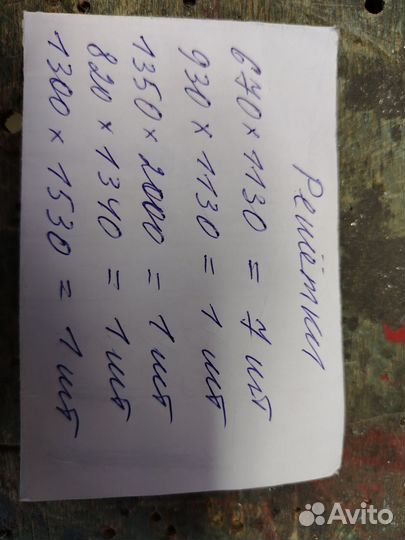 Решётки
670 × 1130 = 7 шт
930 × 1130 = 1 шт
1350 × 2000 = 1 шт
820 × 1340 = 1 шт
1300 × 1530 = 1 шт
Avito